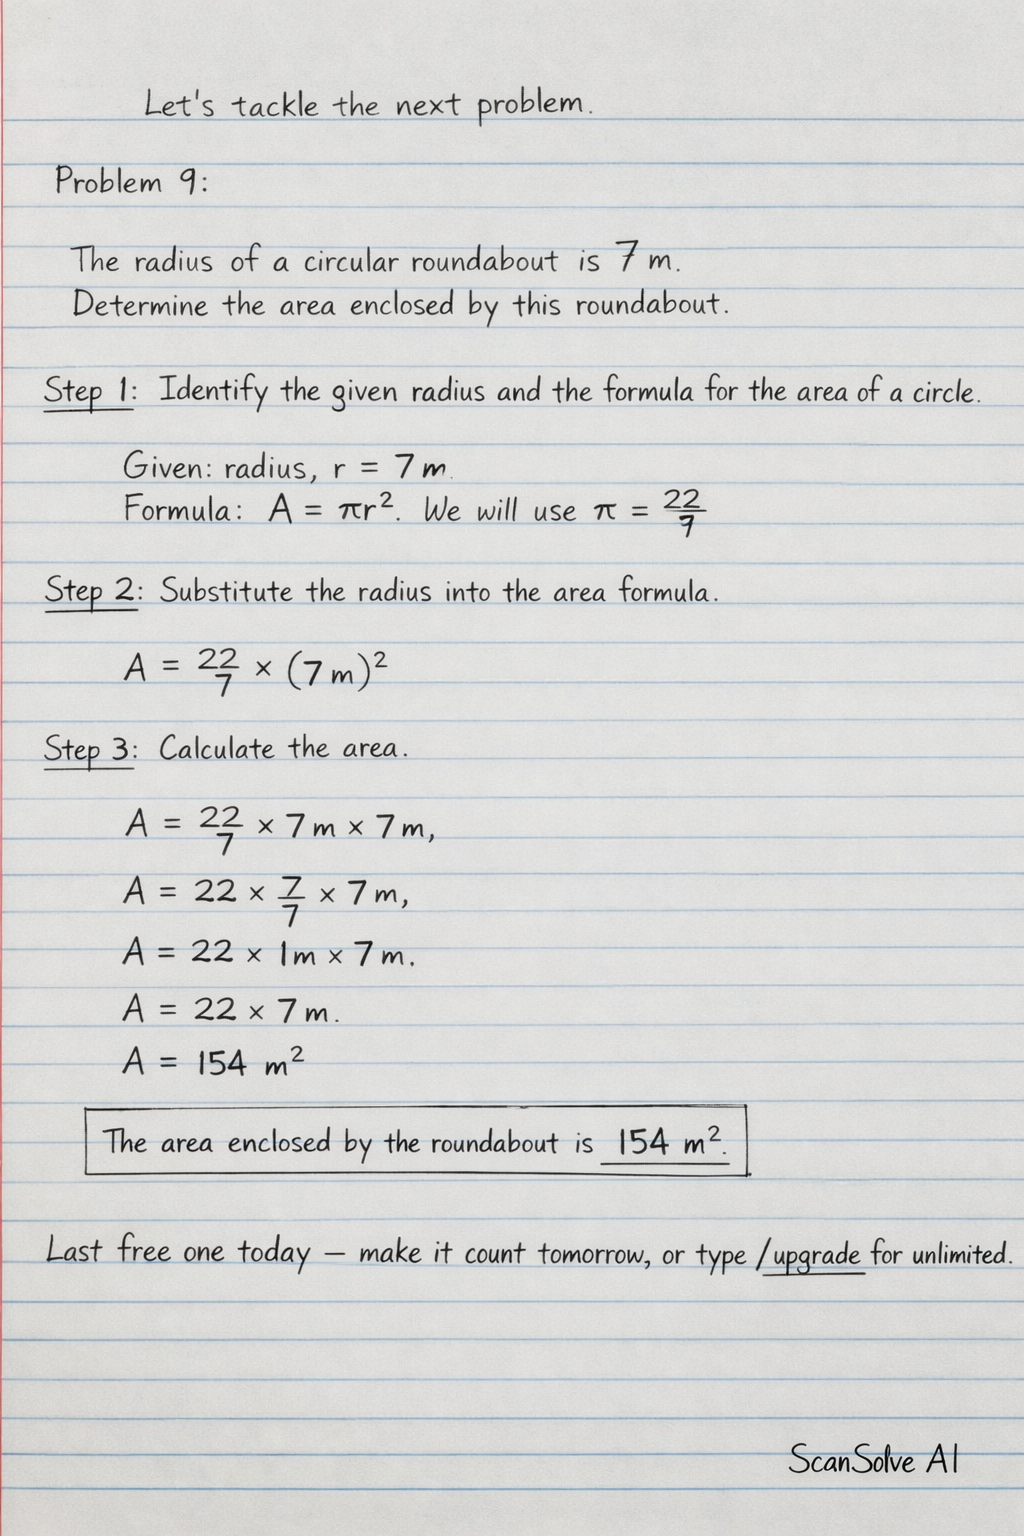 Let's tackle the next problem.
Problem 9:
The radius of a circular roundabout is 7 m.
Determine the area enclosed by this roundabout.
Step 1: Identify the given radius and the formula for the area of a circle.
Given: radius, r = 7 m.
Formula: A = πr². We will use π = 22/7
Step 2: Substitute the radius into the area formula.
A = 22/7 × (7 m)²
Step 3: Calculate the area.
A = 22/7 × 7 m × 7 m,
A = 22 × 7/7 × 7 m,
A = 22 × 1 m × 7 m.
A = 22 × 7 m.
A = 154 m²
The area enclosed by the roundabout is 154 m².
Last free one today — make it count tomorrow, or type /upgrade for unlimited.
ScanSolve AI